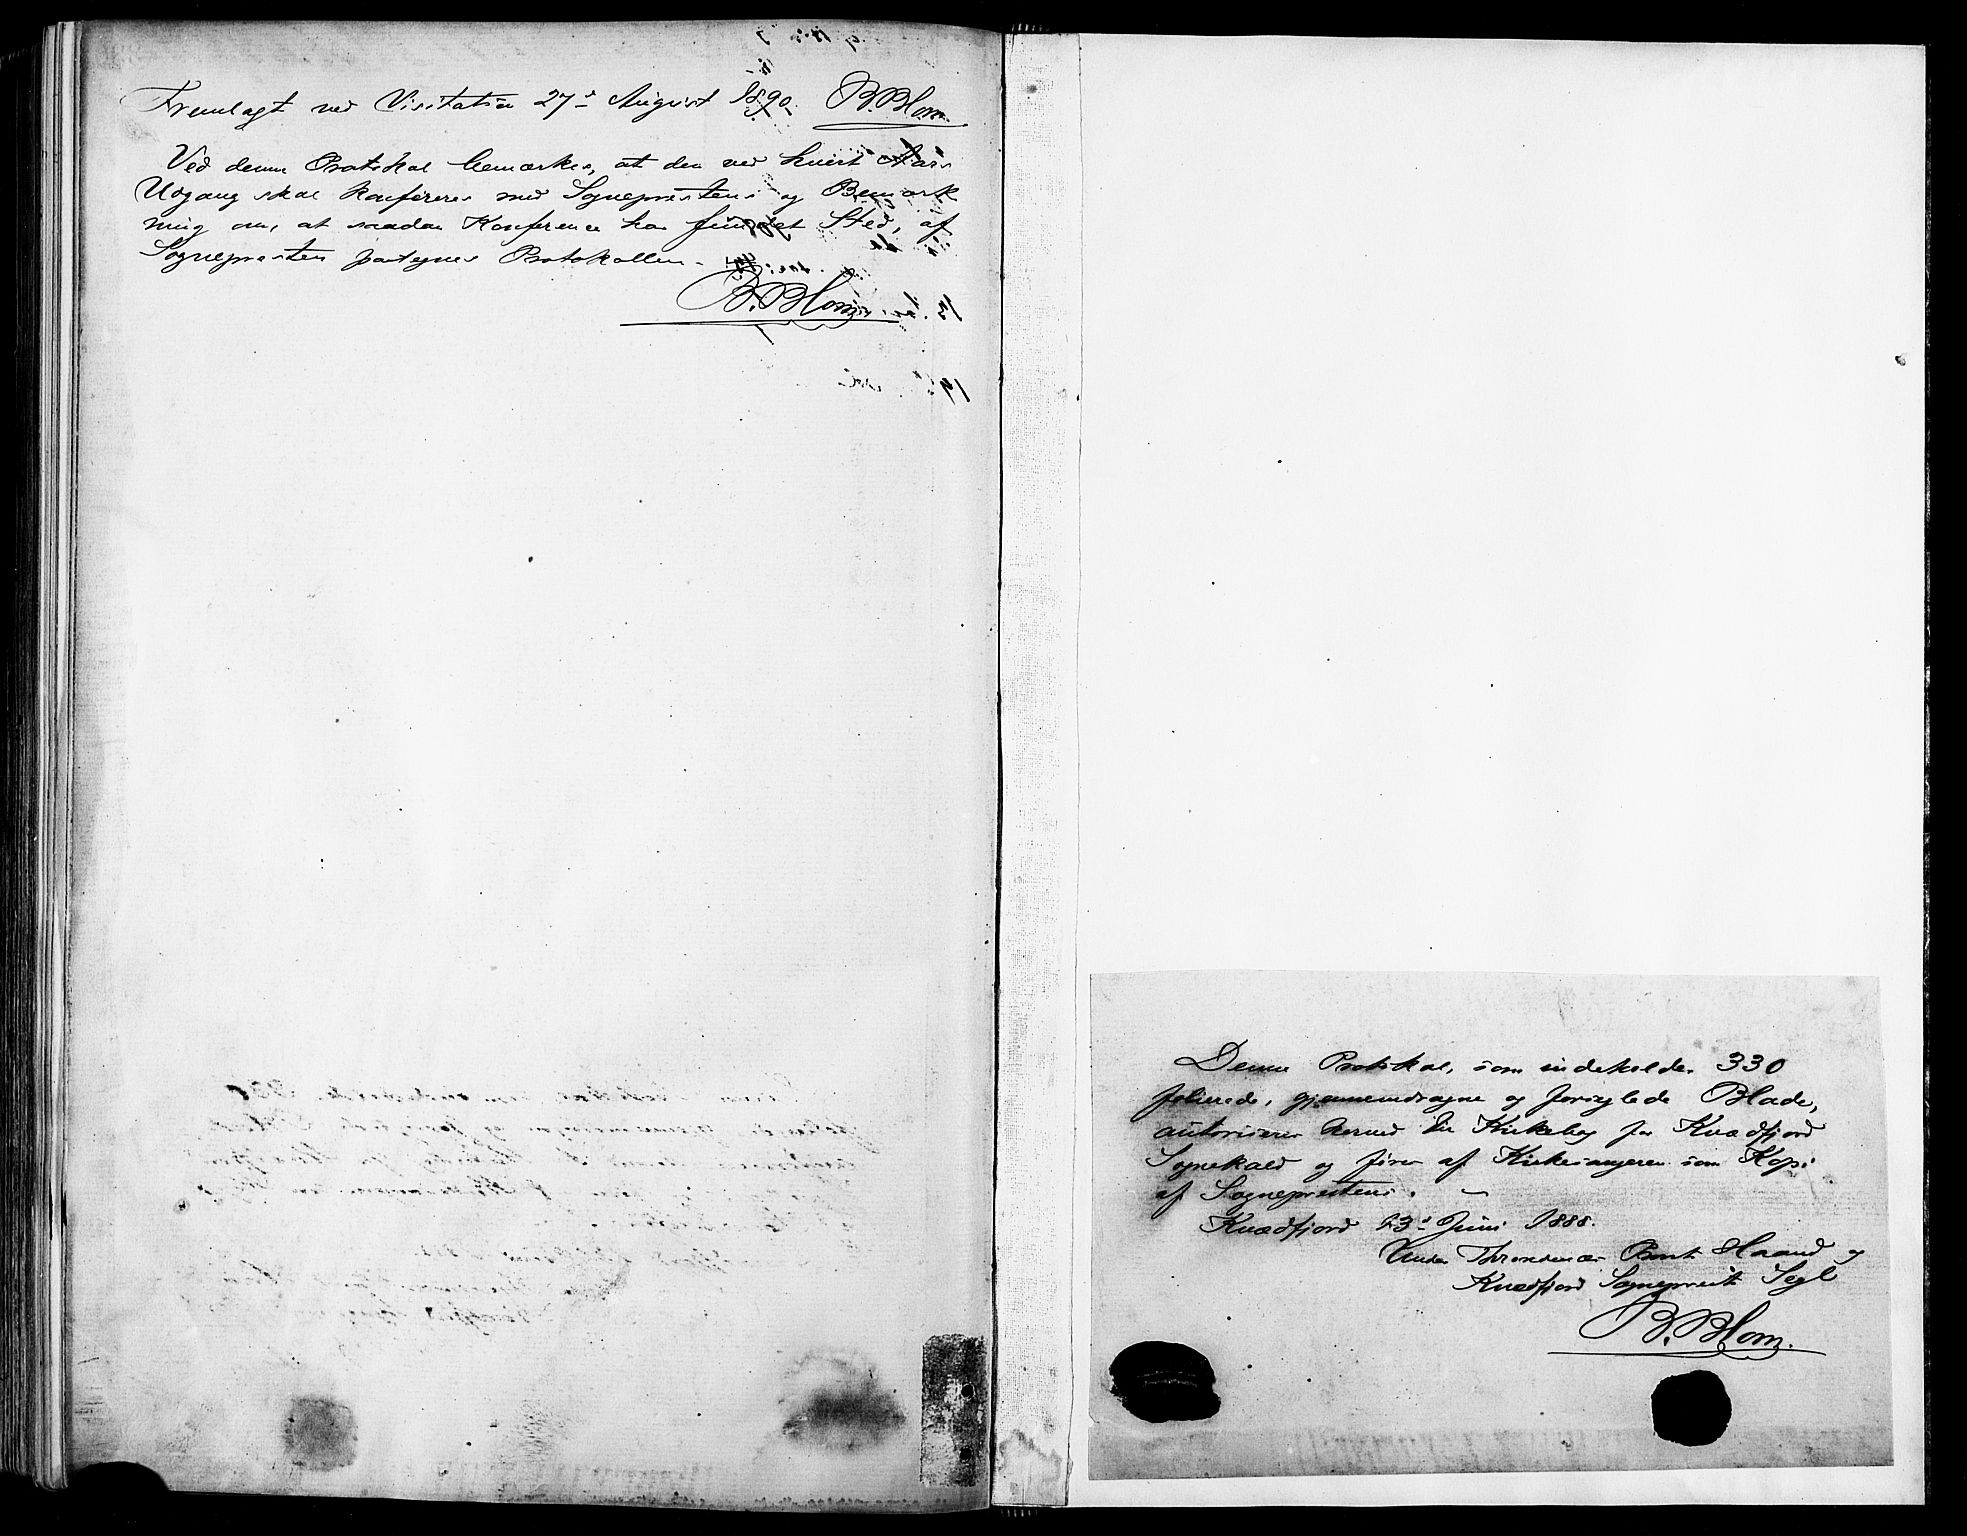 Fremlagt ved Visitatsen 27de August 1890. B. Blom
Ved denne Protokol bemærkes, at den ved hvert Aars
Udgang skal konfereres med Sogneprestens og Bemærk
ning om, at saadan Konference har fundet Sted, af
Sognepresten paategnes Protokollen.-
B. Blom
Denne Protokol, som indeholder 330
folierede, gjennemdragne og forseglede Blade,
autoriseres herved til Kirkebog for Kvædfjord
Sognekald og føres af Kirkesangeren som Kopi
af Sogneprestens. -
Kvædfjord 13de Juni 1888.
Under Throndenæs Provsti Haand og
Kvædfjord Sogneprest Segl
B. Blom.